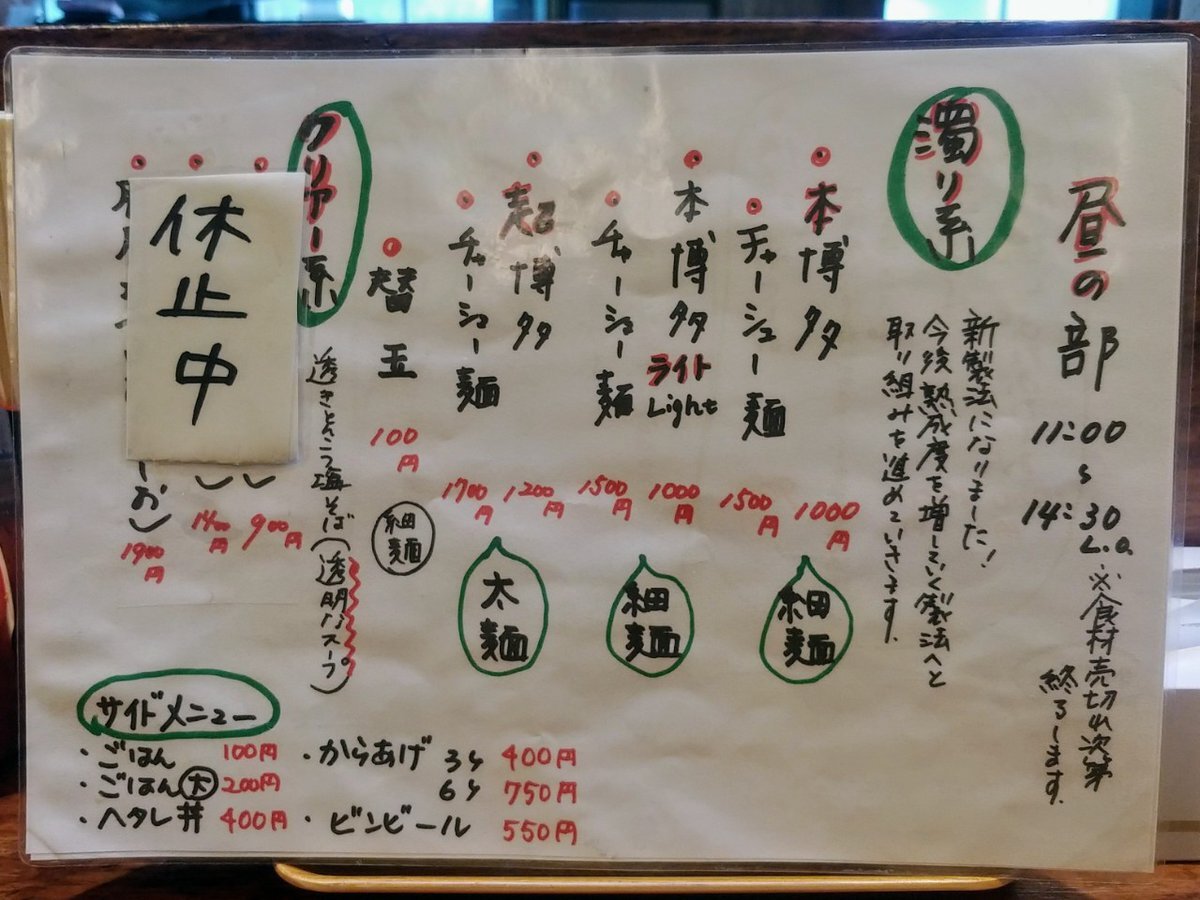 昼の部
11:00
〜
14:30
L.O.
※食材売切れ次第
終ります。
濁り系
新製法になりました!
今後熟成度を増していく製法へと
取り組みを進めていきます。
本博多
1000円
チャーシュー麺
1500円
細麺
本博多
ライト
Light
1000円
チャーシュー麺
1500円
細麺
超博多
1200円
チャーシュー麺
1700円
太麺
替玉
100円
細麺
クリアー系
透きとんこつ塩そば(透明なスープ)
休止中
900円
1400円
1900円
サイドメニュー
・ごはん 100円
・ごはん大 200円
・ヘタレ丼 400円
・からあげ 3ケ 400円
6ケ 750円
・ビンビール 550円